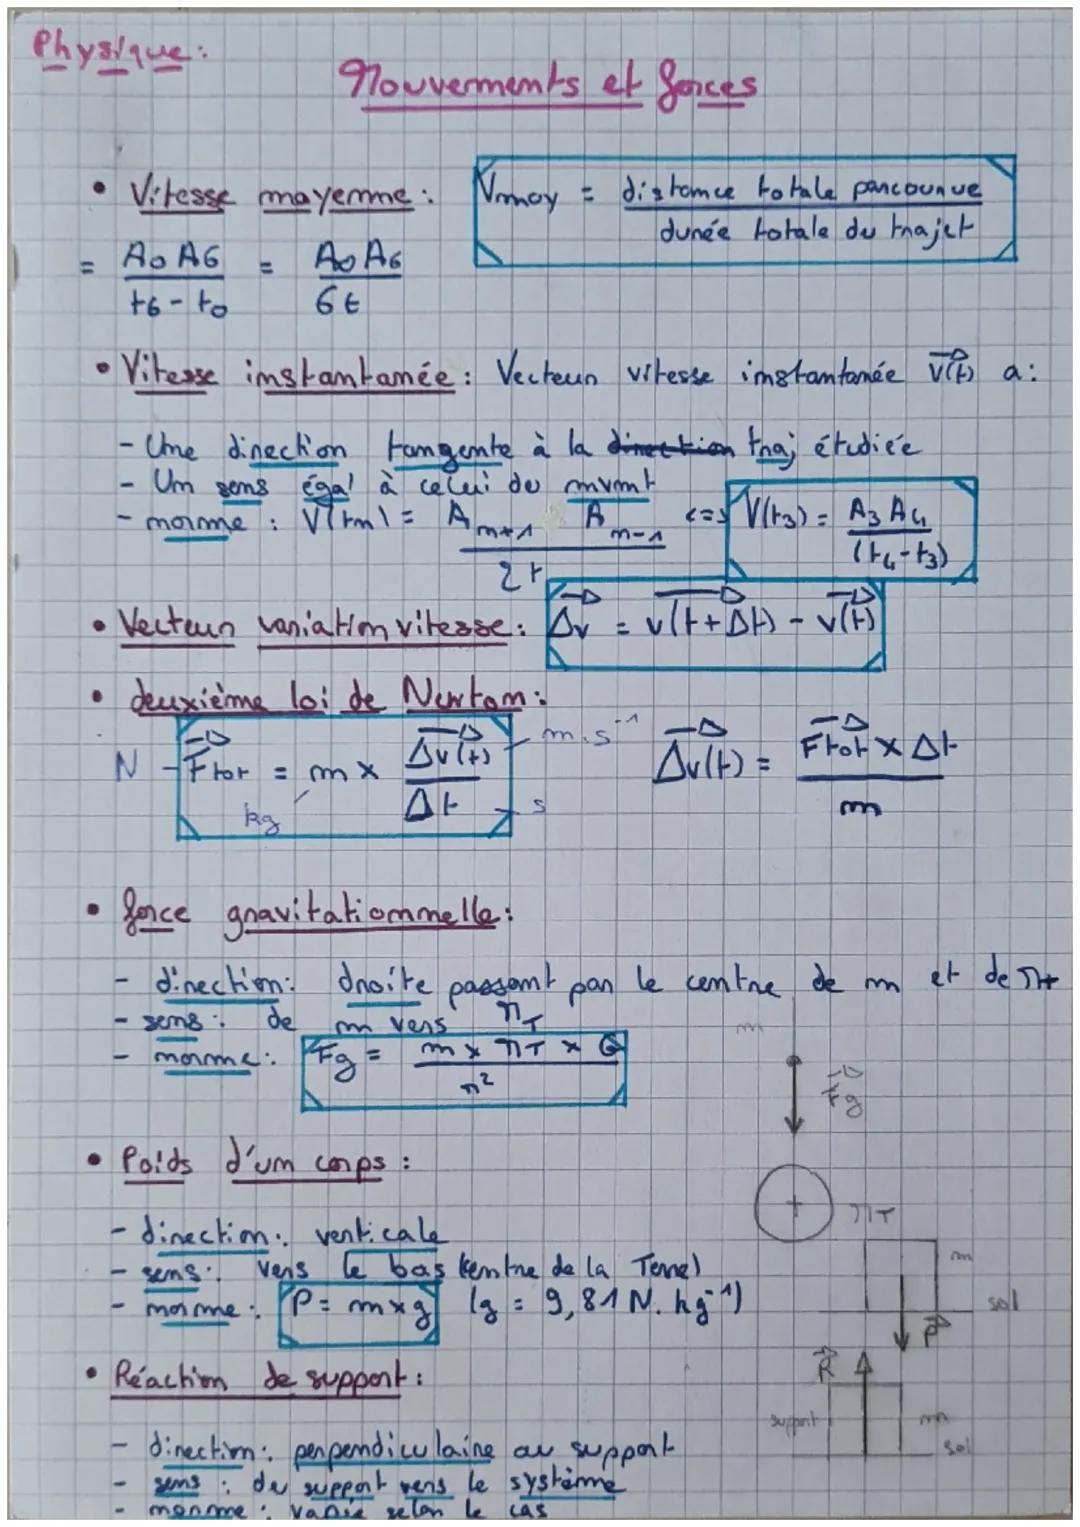 Physique :
Mouvements et forces
• Vitesse moyenne : Vmoy = distance totale parcourue / durée totale du trajet
= A0 A6 / t6 - t0 = A0 A6 / 6t
• Vitesse instantanée : Vecteur vitesse instantanée v(t) a :
- Une direction tangente à la direction traj étudiée
- Un sens égal à celui du mvmt
- norme : V(tn) = A n+1 A n-1 / 2t <=> V(t3) = A3 A4 / (t4-t3)
• Vecteur variation vitesse : Δv = v(t+Δt) - v(t)
• deuxième loi de Newton :
N - Ftot = m x Δv(t) / Δt m.s⁻¹ Δv(t) = Ftot x Δt / m
kg s
• force gravitationnelle :
- direction : droite passant par le centre de m et de MT
- sens : de m vers MT
- norme : Fg = m x MT x G / r²
m
Fg
• Poids d'un corps :
MT
- direction : verticale
- sens : vers le bas (centre de la Terre)
m
- norme : P = m x g (g = 9,81 N.kg⁻¹)
sol
P
• Réaction de support :
R
support m
sol
- direction : perpendiculaire au support
- sens : du support vers le système
- norme : varie selon le cas